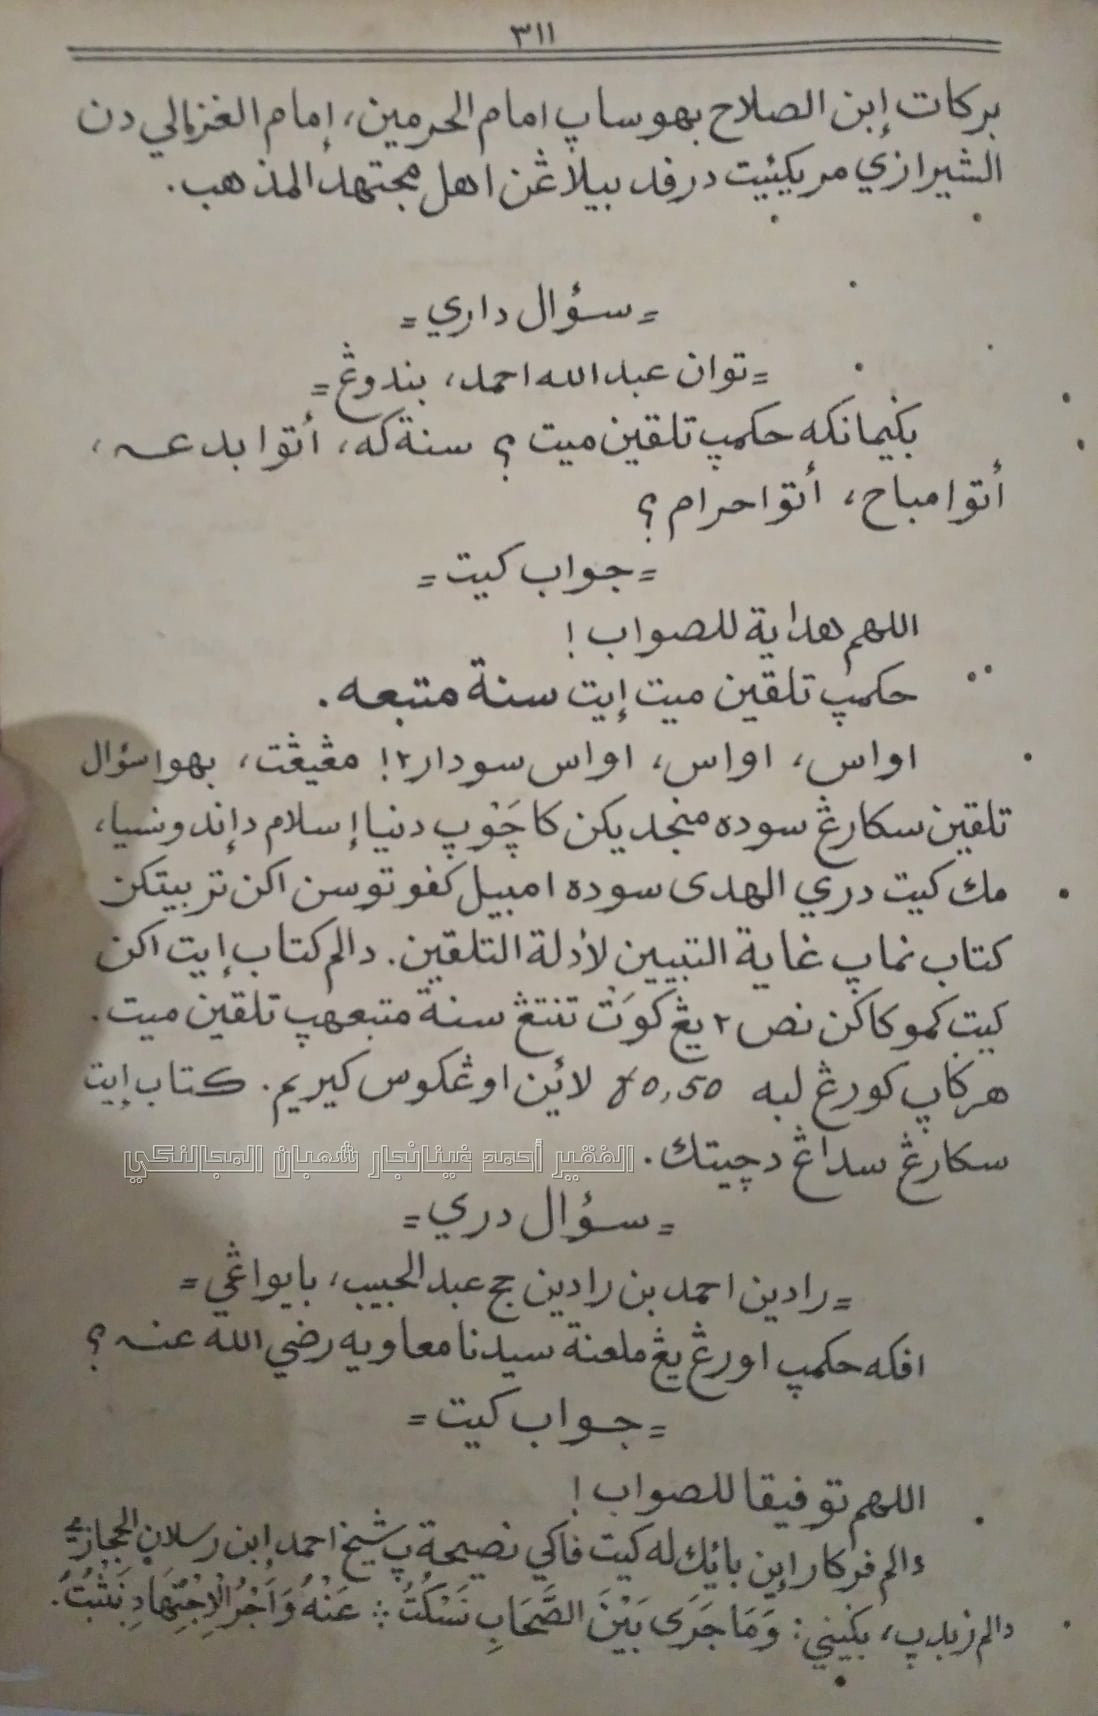 ٣١١
بركات إبن الصلاح بهوساڽ امام الحرمين، إمام الغزالي دن
الشيرازي مريكئيت درفد بيلاڠن اهل مجتهد المذهب.
= سؤال داري =
= توان عبد الله احمد، بندوڠ =
بڬيمانكه حكمڽ تلقين ميت ؟ سنة كه، أتوا بدعه،
أتوا مباح، أتوا حرام ؟
= جواب كيت =
اللهم هداية للصواب !
حكمڽ تلقين ميت إيت سنة متبعه.
اواس، اواس، اواس سودار٢! مڠيڠت، بهوا سؤال
تلقين سكارڠ سوده منجديكن كاچَوْڽ دنيا إسلام دإندونسيا،
مك كيت دري الهدى سوده امبيل كفوتوسن اكن تربيتكن
كتاب نماڽ غاية التبيين لأدلة التلقين. دالم كتاب إيت اكن
كيت كموكاكن نص٢ يڠ كوَتْ تنتڠ سنة متبعهڽ تلقين ميت.
هرڬاڽ كورڠ لبه ٨٥,٥٥ لائين اوڠكوس كيريم. كتاب إيت
سكارڠ سداڠ دچيتك.
الفقير أحمد غينانجار شعبان المجالنكي
= سؤال دري =
= رادين احمد بن رادين حج عبد الحبيب، بايواڠي =
افكه حكمڽ اورڠ يڠ ملعنة سيدنا معاويه رضي الله عنه ؟
= جواب كيت =
اللهم توفيقا للصواب !
دالم فركارا إين بائيك له كيت فاكي نصيحة ڽ شيخ احمد إبن رسلان الحجازي
دالم زبدڽ، بڬيني: وَمَا جَرَى بَيْنَ الصَّحَابِ نَسْكُتُ ؞ عَنْهُ وَأَجْرُ الْإِجْتِهَادِ نُثْبِتُ.